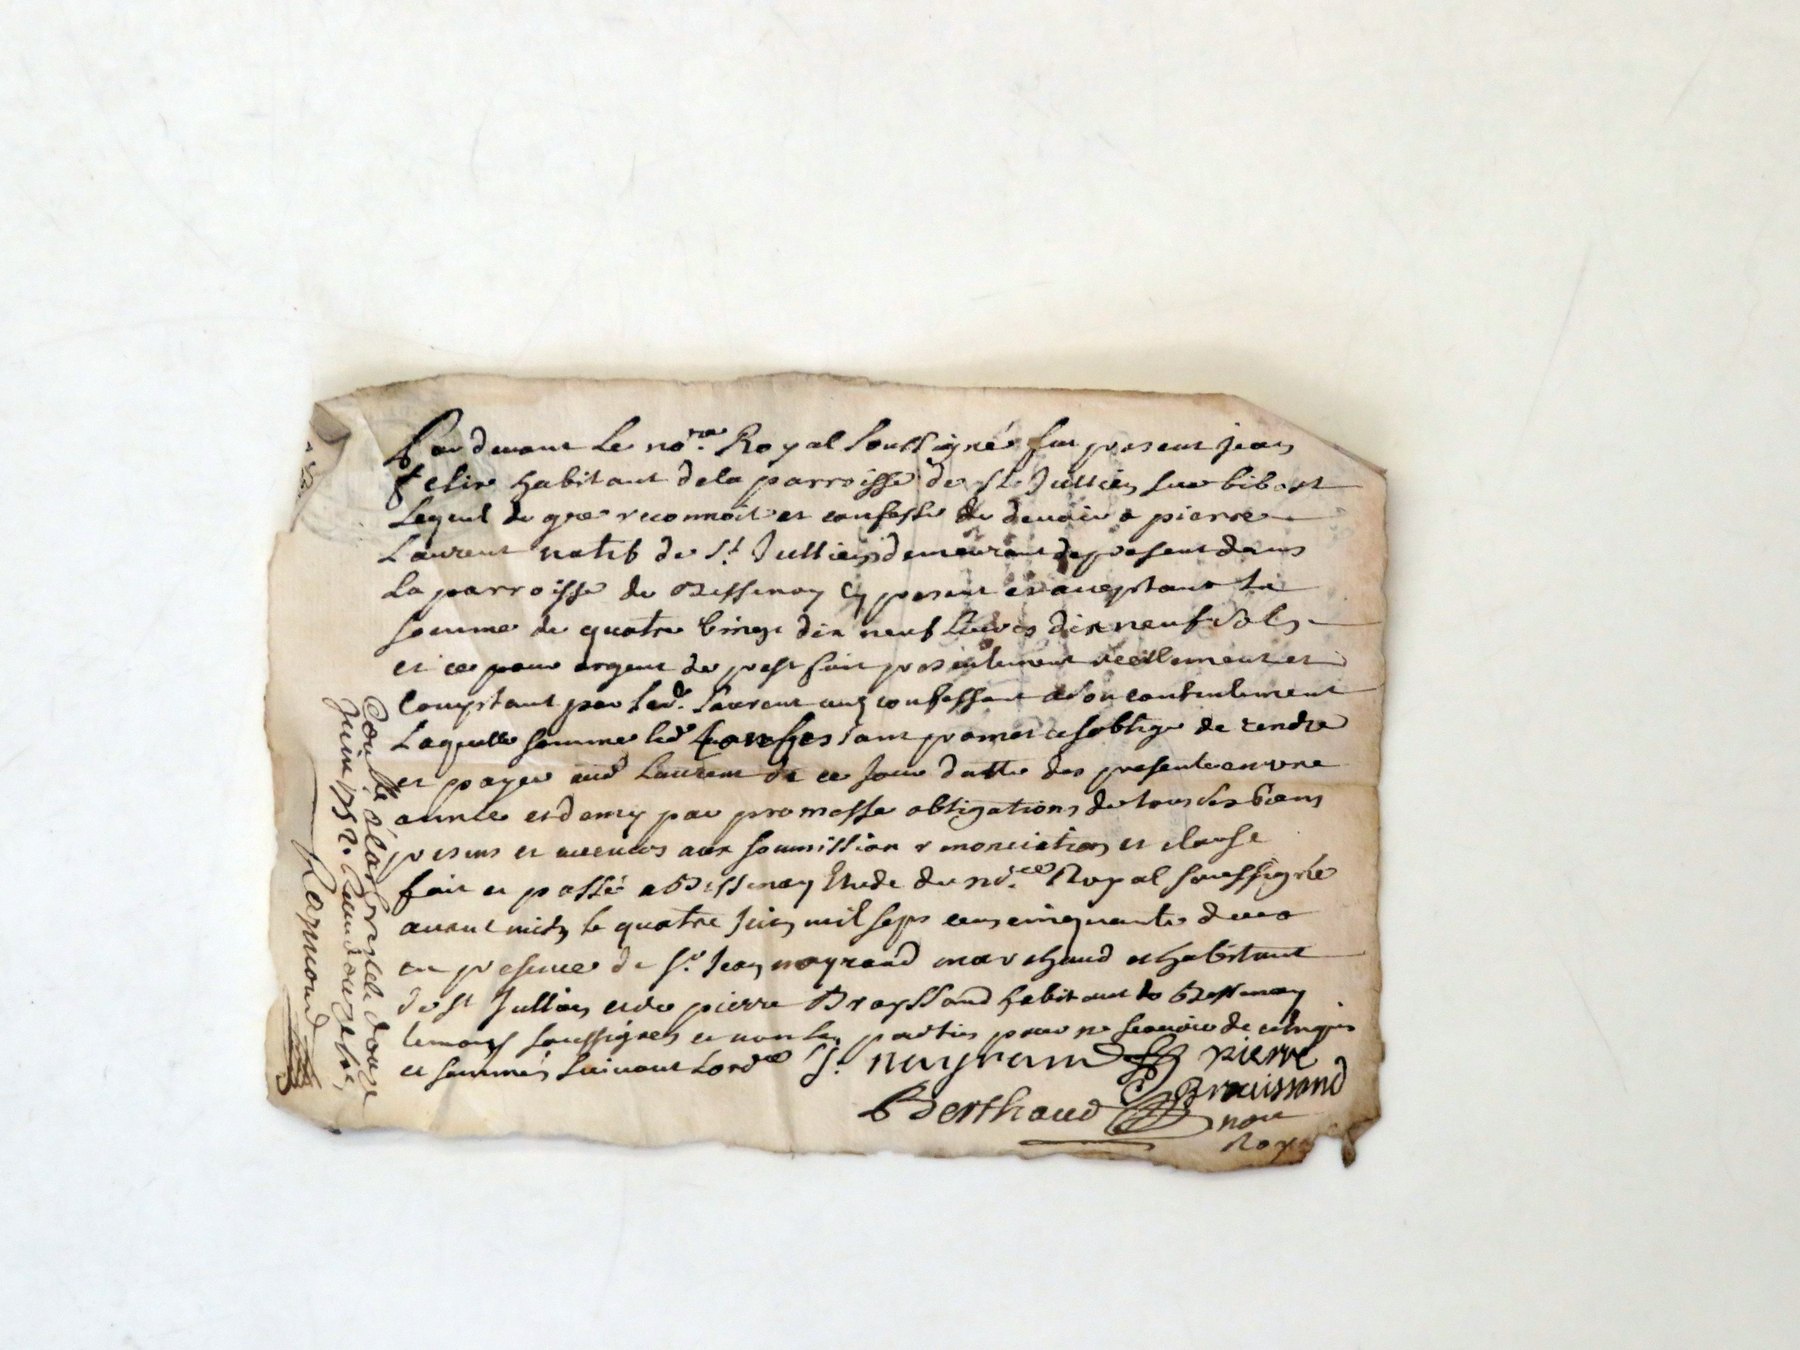 Par devant le no.re Royal soussigné fut present jean
felix habitant dela parroisse de St Jullien sur bibost
Lequel de gre reconnoit et confesse de devoir a pierre
Laurent natif de St Jullien demeurant apresent dans
La parroisse de Bessenay cy present et acceptant la
somme de quatre vingt dix neuf Livres dix neuf sols
et ce pour argent de prest fait presentement reellement et
Comptant par led. Laurent aud confessant a son contentement
Laquelle somme led promet et soblige de rendre
et payer aud Laurent de ce jour datte des presente en une
année et demy par promesse obligations de tous ses biens
presens et avenirs aux soumission renonciation et clause
fait et passé a Bessenay Etude du no.re Royal soussigné
avant midy le quatre juin mil sept cens cinquante deux
en presence de sr. Jean nayrand marchand et habitant
de st Jullien et de pierre Brayssand habitant de Bessenay
temoins soussignes et non les parties pour ne scavoir de ce enquis
et sommés suivant Lord.ce J. nayrand pierre
Braissand
Berthaud nore
Roya
Controllé a Larbresle le douze
Juin 1752. Reçu douze sols
Raymond